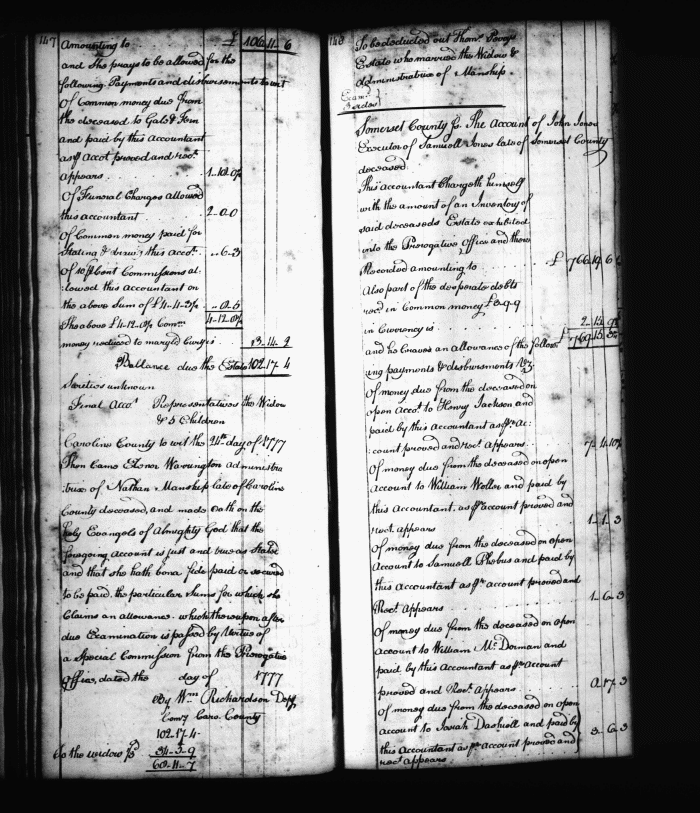 147
Amounting to £ 106..11..6
and She prays to be allowed for the
following Payments and disbursements to wit
Of Common money due from
the deceased to Gale &
and paid by this Accountant
as pr Accot proved and rect.
appears 1..12..0½
Of Funeral Charges allowed
this accountant 2..0..0
Of Common money paid for
Stating & draw.g this Acct. ..6..3
Of 10 pr Cent Commissions al:
lowed this Accountant on
the above Sum of £4..4..3½ ..8..5
4..12..0½
The above £4..12..0½ Comn
money reduced to Maryld Curry is 3..14..2
Ballance due the Estate 102..17..4
Sureties unknown
Final Acct. Representatives the Widow
& 5 Children
Caroline County to wit the 21st day of 1777
Then Came Elenor Warrington administra
trix of Nathan Manship late of Caroline
County deceased, and made Oath on the
holy Evangels of Almighty God that the
foregoing Account is just and true as Stated
and that she hath bona fide paid or secured
to be paid, the particular Sums for which she
Claims an allowance. which thereupon after
due Examination is passed by Vertue of
a Special Commission from the Prerogative
Office, dated the day of 1777
By Wm Richardson Depy
Comy Caro. County
102..17..4
To the widow ⅓d 34..5..9
68..11..7
148
To be deducted out Thoms. Perry's
Estate who married the Widow &
Administratrix of Manship.
Exam.d
Somerset County Ss. The Account of John Jones
Executor of Samuell Jones late of Somerset County
deceased.
This Accountant Chargeth himself
with the amount of an Inventory of
said deceaseds Estate exhibited
into the Prerogative Office and there
Recorded amounting to £ 766..19..6
Also part of the desperate debts
recd in Common money £3..9..9
in Currency is 2..15..9½
£ 769..15..3½
and he Craves an allowance of the follow:
ing payments & disbursments Viz:
Of money due from the deceased on
open Accot. to Henry Jackson and
paid by this Accountant as pr Ac:
count proved and rect. Appears 7..4..10½
Of money due from the deceased on open
Account to William Weller and paid by
this Accountant, as pr account proved and
rect. appears 1..1..3
Of money due from the deceased on open
Account to Samuell Phebus and paid by
this Accountant as pr account proved and
Rect. Appears 1..6..3
Of money due from the deceased on open
account to William Mc.Dorman and
paid by this Accountant as pr Account
proved and Rect. Appears 0..17..3
Of money due from the deceased on open
account to Josiah Dashiell and paid by
this Accountant as pr Account proved and
rect appears 3..6..3